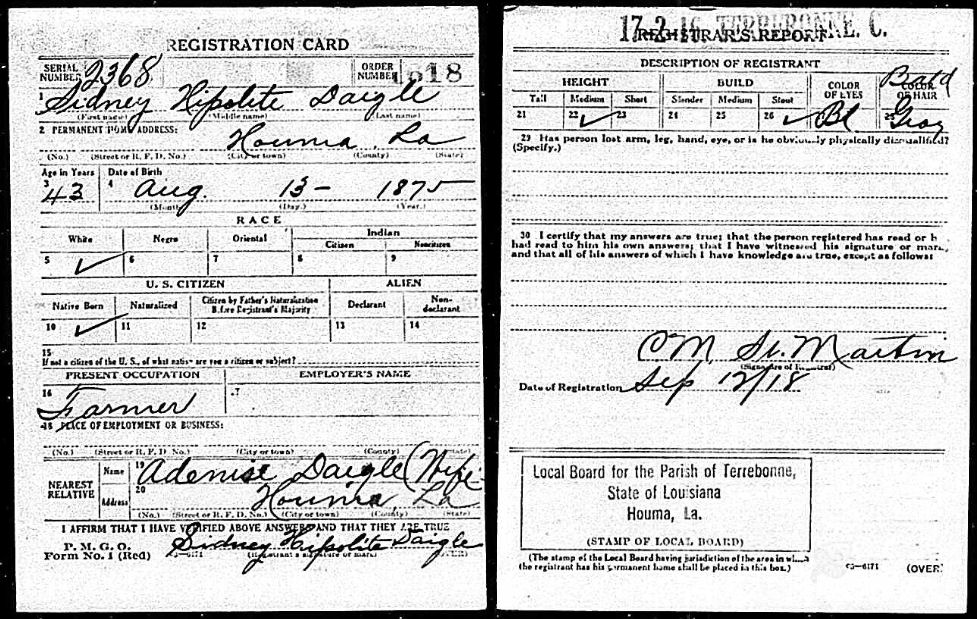 REGISTRATION CARD
SERIAL NUMBER 2368 ORDER NUMBER 1818
1 Sidney Hipolite Daigle
(First name) (Middle name) (Last name)
2 PERMANENT HOME ADDRESS:
Houma La
(No.) (Street or R. F. D. No.) (City or town) (County) (State)
Age in Years Date of Birth
3 43 4 Aug. 13- 1875
(Month) (Day.) (Year.)
RACE
White Negro Oriental Indian
Citizen Noncitizen
5 ✓ 6 7 8 9
U. S. CITIZEN ALIEN
Native Born Naturalized Citizen by Father's Naturalization Before Registrant's Majority Declarant Non-declarant
10 ✓ 11 12 13 14
15
If not a citizen of the U. S., of what nation are you a citizen or subject?
PRESENT OCCUPATION EMPLOYER'S NAME
16 Farmer 17
18 PLACE OF EMPLOYMENT OR BUSINESS:
(No.) (Street or R. F. D. No.) (City or town) (County) (State)
NEAREST RELATIVE Name 19 Adenise Daigle (Wife
Address 20 Houma La
(No.) (Street or R. F. D. No.) (City or town) (County) (State)
I AFFIRM THAT I HAVE VERIFIED ABOVE ANSWERS AND THAT THEY ARE TRUE
P. M. G. O.
Form No. 1 (Red) Sidney Hipolite Daigle
(Registrant's signature or mark)
17-2-16 TERREBONNE. C.
REGISTRAR'S REPORT
DESCRIPTION OF REGISTRANT
HEIGHT BUILD COLOR OF EYES COLOR OF HAIR Bald
Tall Medium Short Slender Medium Stout
21 22 ✓ 23 24 25 26 ✓ Bl 28 Gray
29 Has person lost arm, leg, hand, eye, or is he obviously physically disqualified?
(Specify.)
30 I certify that my answers are true; that the person registered has read or h
had read to him his own answers; that I have witnessed his signature or mark,
and that all of his answers of which I have knowledge are true, except as follows:
CM St. Martin
(Signature of Registrar)
Date of Registration Sep 12/18
Local Board for the Parish of Terrebonne,
State of Louisiana
Houma, La.
(STAMP OF LOCAL BOARD)
(The stamp of the Local Board having jurisdiction of the area in which
the registrant has his permanent home shall be placed in this box.)
03—6171 (OVER)